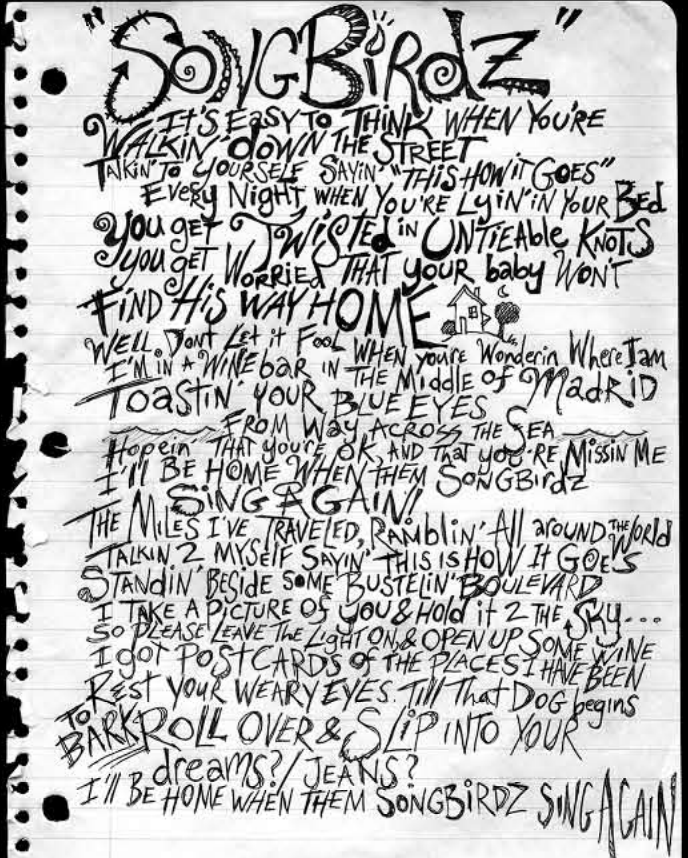 "SONGBiRdZ"
IT'S EASY TO THINK WHEN YOU'RE
WALKIN' dOWN THE STREET
TALKIN' TO YOURSELF SAYIN' "THIS HOW iT GOES"
EVERY NIGHT WHEN YOU'RE LYiN' iN YOUR BEd
YOU gET TWiSTEd iN UNTiEAblE KNOTS
YOU gET WORRiEd THAT YOUR baby WON'T
FiND HiS WAY HOME
WELL. DONT LET iT FOOL WHEN youRE Wonderin WhereIam
I'M iN A WiNE baR iN THE MiddlE OF MADRiD
TOASTiN' YOUR BLUE EYES
FROM WAY ACROSS THE SEA
Hopein THAT yOU'RE OK, ANd THAT yOU-RE MiSSiN ME
I'll BE HOME WHEN THEM SONGBirdZ
SiNG AGAiN!
THE MiLES I'VE TRAVELED, RAMbLiN' All aROUNd THE WORld
TALKiN 2 MYSElF SAYiN' THiS iS HOW IT GOES
STANdiN' BESidE SOME BUSTELiN' BOULEVARD
I TAKE A PiCTURE OF yOU & HOld iT 2 THE SKY...
SO PLEASE LEAVE THE LiGHT ON, & OPEN UP SOME WiNE
I gOT POSTCARDS OF THE PLACES I HAVE BEEN
REST YOUR WEARY EYES. Till THAT DOG begins
TO BARK & ROLL OVER & SLiP iNTO YOUR
dREAMS?/JEANS?
I'll BE HOME WHEN THEM SONGBiRDZ SiNG AGAiN